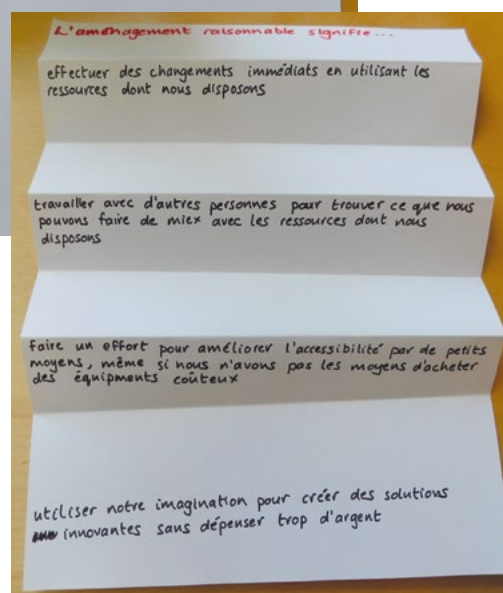 L'aménagement raisonnable signifie...
effectuer des changements immédiats en utilisant les
ressources dont nous disposons
travailler avec d'autres personnes pour trouver ce que nous
pouvons faire de miex avec les ressources dont nous
disposons
faire un effort pour améliorer l'accessibilité par de petits
moyens, même si nous n'avons pas les moyens d'acheter
des équipments coûteux
utiliser notre imagination pour créer des solutions
innovantes sans dépenser trop d'argent